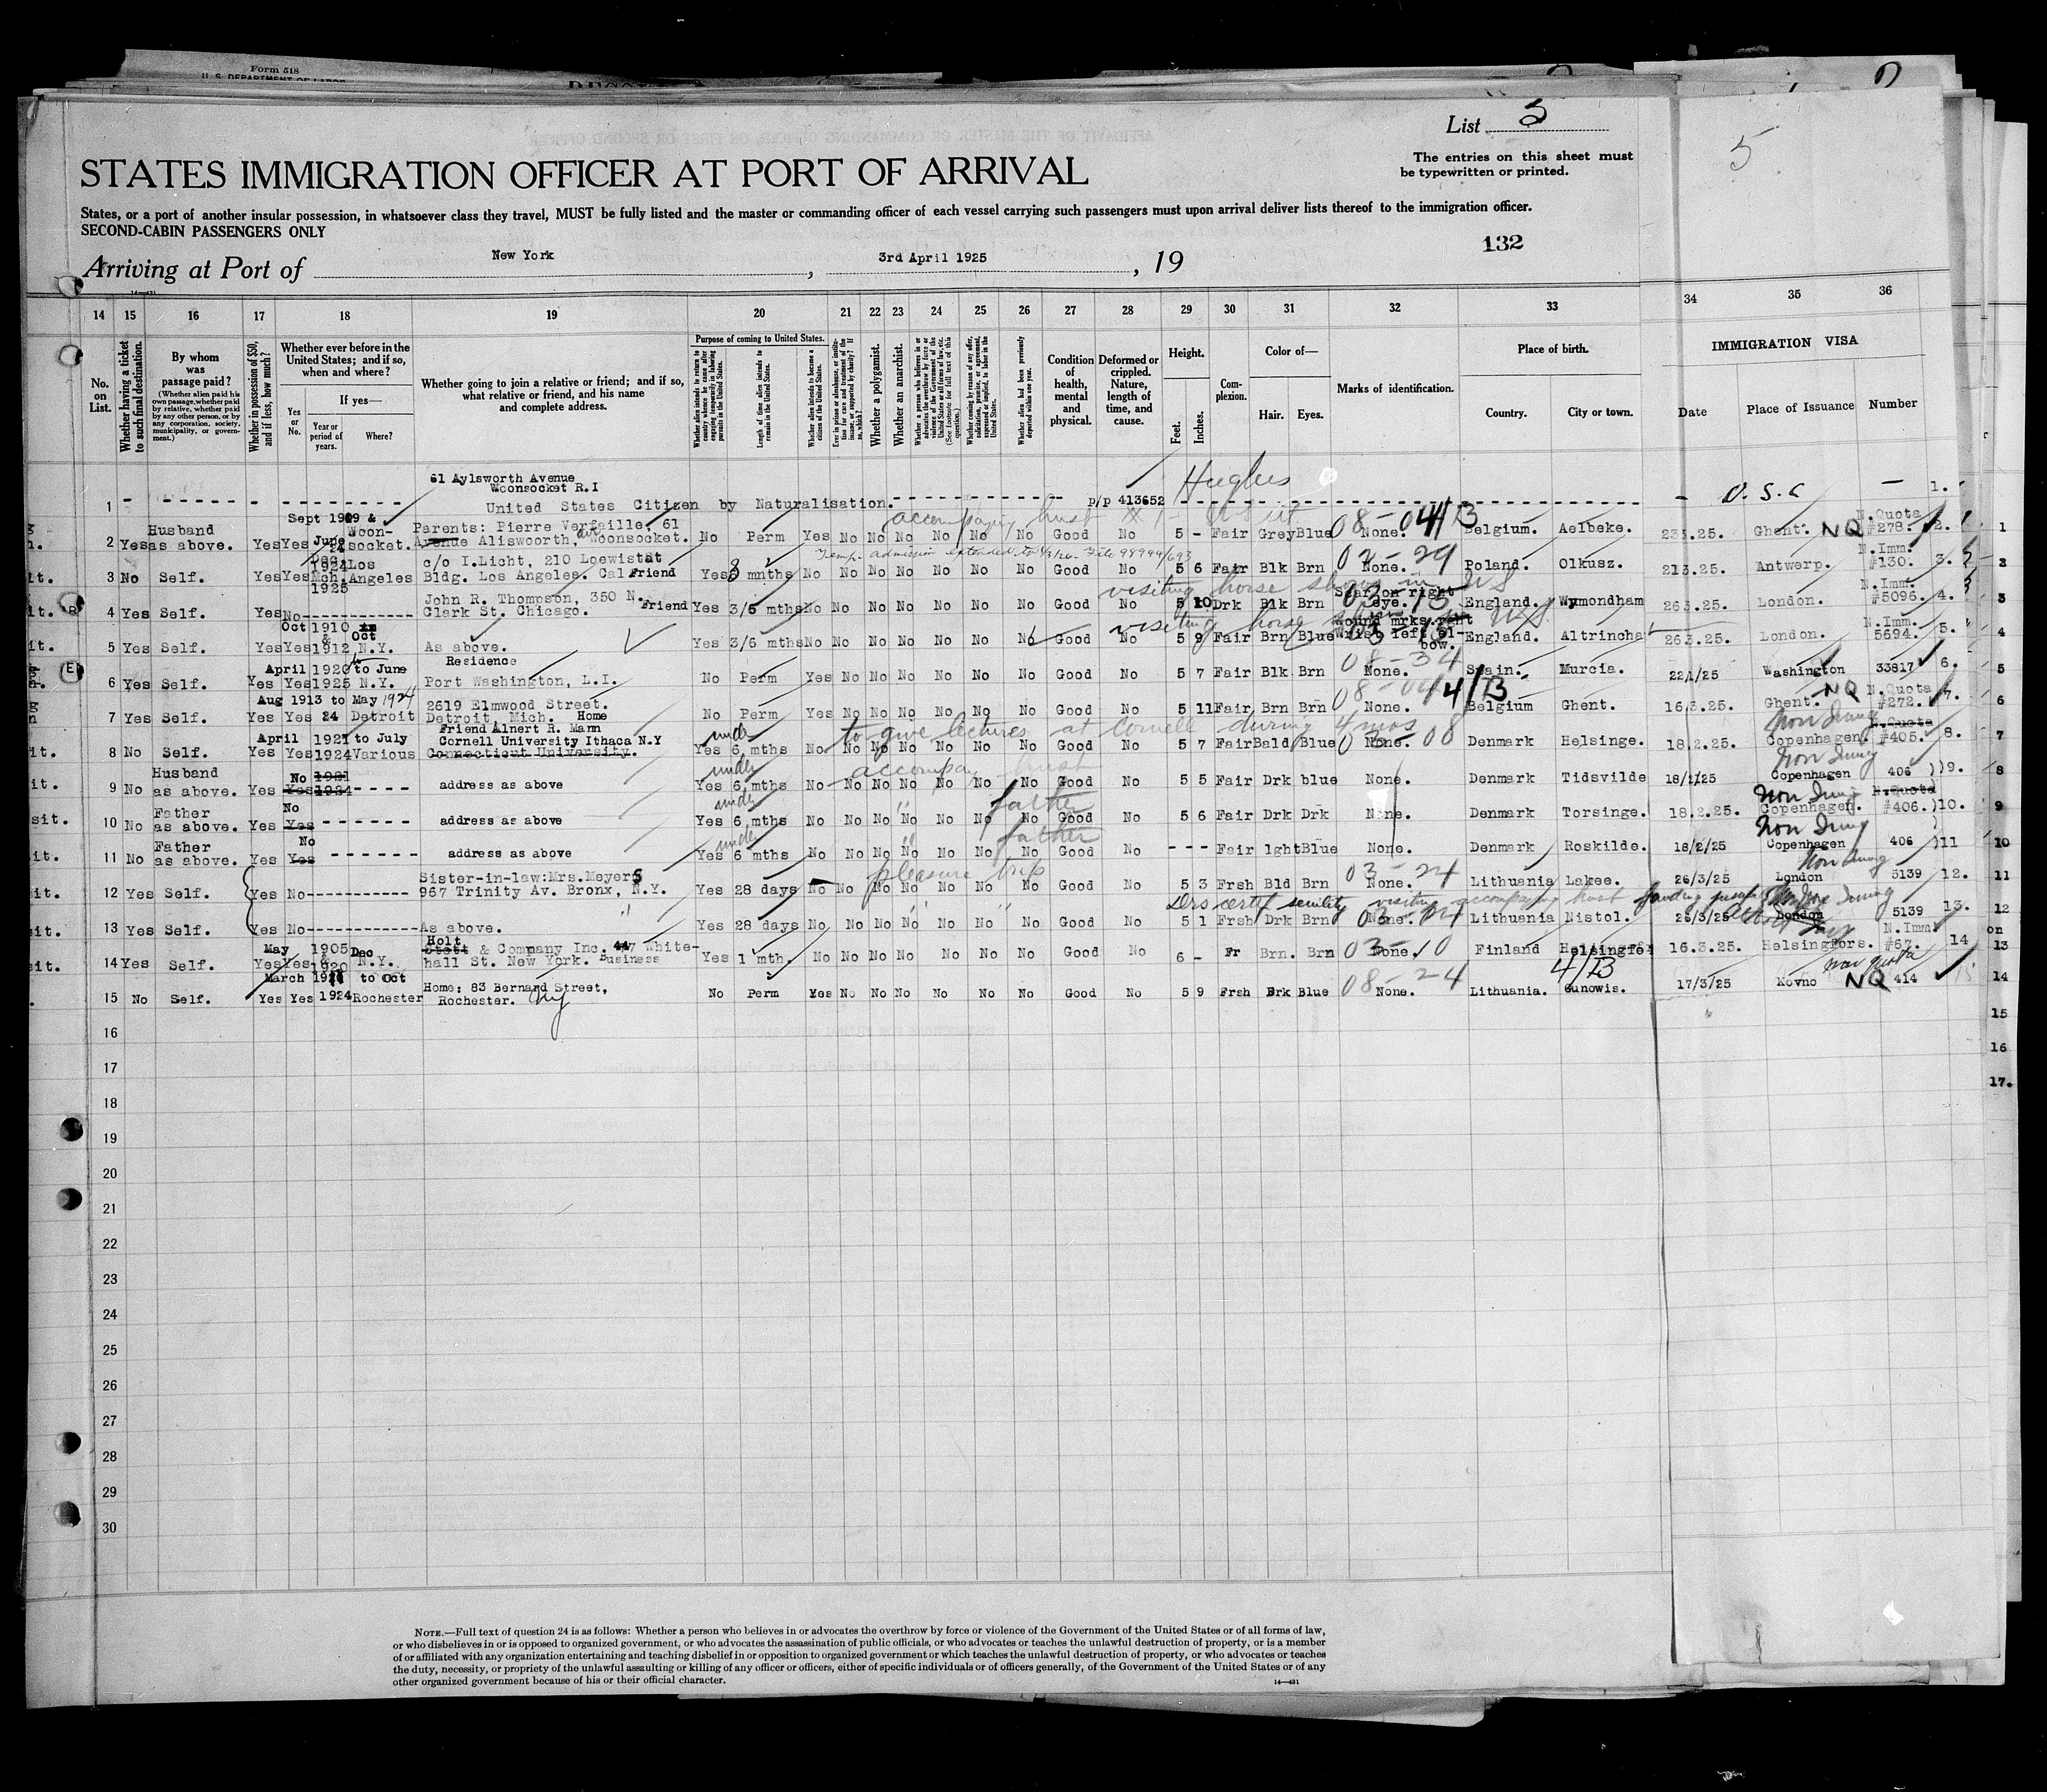 Form 518
U. S. DEPARTMENT OF LABOR
List 5
5
The entries on this sheet must
be typewritten or printed.
STATES IMMIGRATION OFFICER AT PORT OF ARRIVAL
States, or a port of another insular possession, in whatsoever class they travel, MUST be fully listed and the master or commanding officer of each vessel carrying such passengers must upon arrival deliver lists thereof to the immigration officer.
SECOND-CABIN PASSENGERS ONLY
132
Arriving at Port of New York, 3rd April 1925, 19
14 15 16 17 18 19 20 21 22 23 24 25 26 27 28 29 30 31 32 33 34 35 36
No. on List.
Whether having a ticket to such final destination.
By whom was passage paid?
(Whether alien paid his own passage, whether paid by relative, whether paid by any other person, or by any corporation, society, municipality, or government.)
Whether in possession of $50, and if less, how much?
Whether ever before in the United States; and if so, when and where?
Yes or No.
If yes—
Year or period of years.
Where?
Whether going to join a relative or friend; and if so, what relative or friend, and his name and complete address.
Purpose of coming to United States.
Length of time alien intends to remain in the United States.
Whether alien intends to become a citizen of the United States.
Whether a polygamist.
Whether an anarchist.
Condition of health, mental and physical.
Deformed or crippled. Nature, length of time, and cause.
Height.
Feet. Inches.
Complexion.
Color of—
Hair. Eyes.
Marks of identification.
Place of birth.
Country. City or town.
IMMIGRATION VISA
Date Place of Issuance Number
61 Aylsworth Avenue
Woonsocket R.I
1 United States Citizen by Naturalisation. p/p 413652 Hughes U.S.C 1.
accompanying husb
2 Yes Husband as above. Yes Yes Sept 1909 & June 24 Woonsocket. Parents: Pierre Verfaille, 61 Avenue Alisworth, Woonsocket. No Perm Yes No No No No No No Good No 5 - Fair Grey Blue None. 08-04 4/B Belgium. Aelbeke. 23.3.25. Ghent. NQ N.Quota #278. 2.
Temp. admission extended to
3 No Self. Yes Yes Dec. 1924 Mch. 1925 Los Angeles c/o I.Licht, 210 Loewist St Bldg. Los Angeles. Cal Friend Yes 8 mnths No No No No No No No Good No 5 6 Fair Blk Brn None. Poland. Olkusz. 21.3.25. Antwerp. N.Imm. #130. 3.
visiting horse shows in US
4 Yes Self. Yes No John R. Thompson, 350 N. Clark St. Chicago. Friend Yes 3/6 mths No No No No No No No Good No 5 10 Drk Blk Brn Scar on right eye. 03-13 England. Wymondham 26.3.25. London. N.Imm. #5096. 4.
visiting horse shows US.
5 Yes Self. Yes Yes Oct 1910 & Oct 1912 N.Y. As above. Yes 3/6 mths No No No No No No No Good No 5 9 Fair Brn Blue Wound mrks.right wrist left elbow. England. Altrincha 26.3.25. London. N.Imm. 5694. 5.
6 Yes Self. Yes Yes April 1920 to June 1925 N.Y. Residence Port Washington, L.I. No Perm Yes No No No No No No Good No 5 7 Fair Blk Brn None. 08-34 Spain. Murcia. 22/1/25 Washington 33817 6.
7 Yes Self. Yes Yes Aug 1913 to May 1924 24 Detroit 2619 Elmwood Street. Detroit, Mich. Home No Perm Yes No No No No No No Good No 5 11 Fair Brn Brn None. 4/B Belgium Ghent. 16.3.25. Ghent. NQ N.Quota #272. 7.
to give lectures at Cornell during 4 mos
8 No Self. Yes Yes April 1921 to July 1924 Various Friend Alnert R. Mann Cornell University Ithaca N.Y Connecticut University. under Yes 6 mths No No No No No No No Good No 5 7 Fair Bald Blue None. Denmark Helsinge. 18.2.25. Non Immig Copenhagen. N.Quota #405. 8.
accompany husb
9 No Husband as above. Yes No Yes 1921 1924 address as above under Yes 6 mths No No No No No No No Good No 5 5 Fair Drk blue None. Denmark Tidsvilde 18/2/25 Non Immig Copenhagen 406 9.
" father
10 No Father as above. Yes No Yes address as above under Yes 6 mths No No No No No No No Good No 5 6 Fair Drk Drk None. Denmark Torsinge. 18.2.25. Non Immig Copenhagen. N.Quota #406. 10.
" father
11 No Father as above. Yes No Yes address as above under Yes 6 mths No No No No No No No Good No - - - Fair lght Blue None. Denmark Roskilde. 18/2/25 Non Immig Copenhagen 406 11
pleasure trip
12 Yes Self. Yes No Sister-in-law:Mrs.Meyers 967 Trinity Av. Bronx, N.Y. Yes 28 days No No No No No No No Good No 5 3 Frsh Bld Brn None. 03-24 Lithuania Lakee. 26/3/25 Non Immig London 5139 12.
Drs certif senility visiting accompanying husb
13 Yes Self. Yes No As above. Yes 28 days No No No No No No No Good No 5 1 Frsh Drk Brn None. Lithuania Nistol. 26/3/25 London 5139 13.
14 Yes Self. Yes Yes May 1905 & Dec 1920 N.Y. Holt & Company Inc. 47 Whitehall St. New York. Business Yes 1 mth. No No No No No No No Good No 6 - Fr Brn. Brn None. 03-10 Finland Helsingfo 16.3.25. Helsingfors. N.Imm #67. 14
15 No Self. Yes Yes March 1911 to Oct 1924 Rochester Home: 83 Bernard Street, Rochester. NY No Perm Yes No No No No No No Good No 5 9 Frsh Drk Blue None. 08-24 4/B Lithuania. Gunowis. 17/3/25 Kovno non quota NQ 414
16
17
18
19
20
21
22
23
24
25
26
27
28
29
30
NOTE.—Full text of question 24 is as follows: Whether a person who believes in or advocates the overthrow by force or violence of the Government of the United States or of all forms of law,
or who disbelieves in or is opposed to organized government, or who advocates the assassination of public officials, or who advocates or teaches the unlawful destruction of property, or is a member
of or affiliated with any organization entertaining and teaching disbelief in or opposition to organized government or which teaches the unlawful destruction of property, or who advocates or teaches
the duty, necessity, or propriety of the unlawful assaulting or killing of any officer or officers, either of specific individuals or of officers generally, of the Government of the United States or of any
other organized government because of his or their official character.
14—431